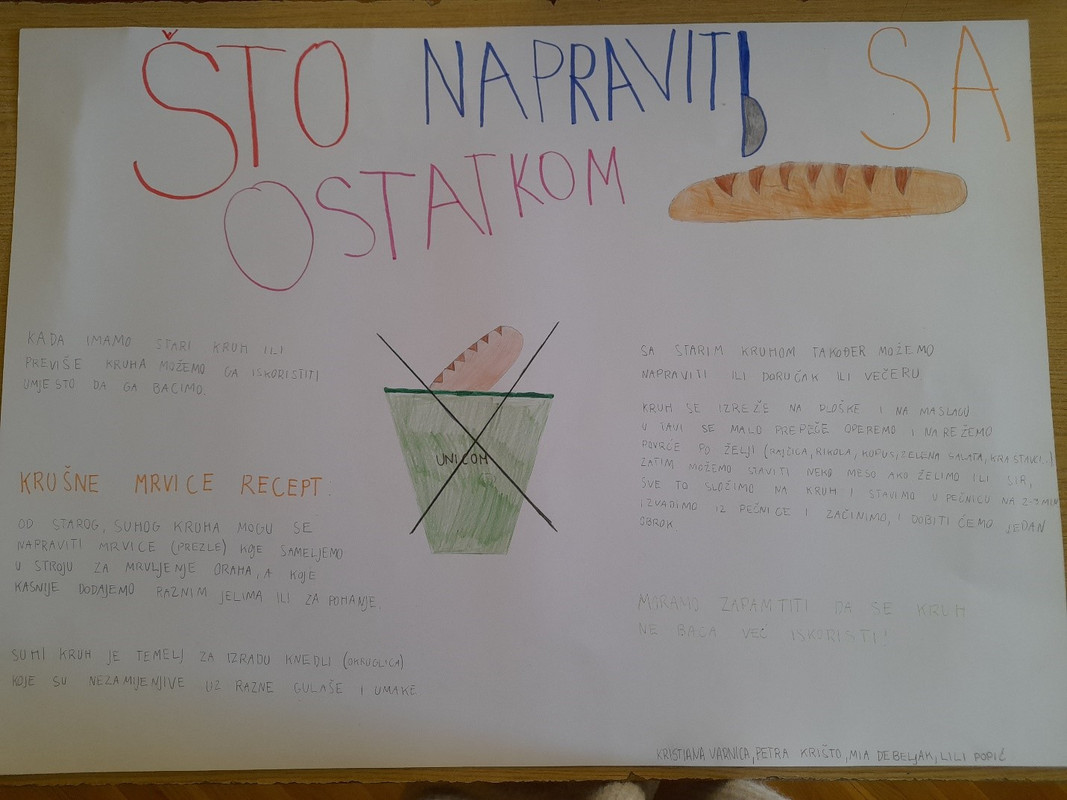 ŠTO NAPRAVITI SA
OSTATKOM
KADA IMAMO STARI KRUH ILI
PREVIŠE KRUHA MOŽEMO GA ISKORISTITI
UMJESTO DA GA BACIMO.
KRUŠNE MRVICE RECEPT.
OD STAROG, SUHOG KRUHA MOGU SE
NAPRAVITI MRVICE (PREZLE) KOJE SAMELJEMO
U STROJU ZA MRVLJENJE ORAHA, A KOJE
KASNIJE DODAJEMO RAZNIM JELIMA ILI ZA POHANJE.
SUHI KRUH JE TEMELJ ZA IZRADU KNEDLI (OKRUGLICA)
KOJE SU NEZAMIJENJIVE UZ RAZNE GULAŠE I UMAKE
SA STARIM KRUHOM TAKOĐER MOŽEMO
NAPRAVITI ILI DORUČAK ILI VEČERU
KRUH SE IZREŽE NA PLOŠKE I NA MASLACU
U TAVI SE MALO PREPEČE OPEREMO I NAREŽEMO
POVRĆE PO ŽELJI (RAJČICA, RIKOLA, KUPUS, ZELENA SALATA, KRASTAVCI..)
ZATIM MOŽEMO STAVITI NEKO MESO AKO ŽELIMO ILI SIR,
SVE TO SLOŽIMO NA KRUH I STAVIMO U PEĆNICU NA
IZVADIMO IZ PEĆNICE I ZAČINIMO, I DOBITI ĆEMO JEDAN
OBROK
MORAMO ZAPAMTITI DA SE KRUH
NE BACA VEĆ ISKORISTI!
KRISTIANA VARNICA, PETRA KRIŠTO, MIA DEBELJAK, LILI POPIĆ